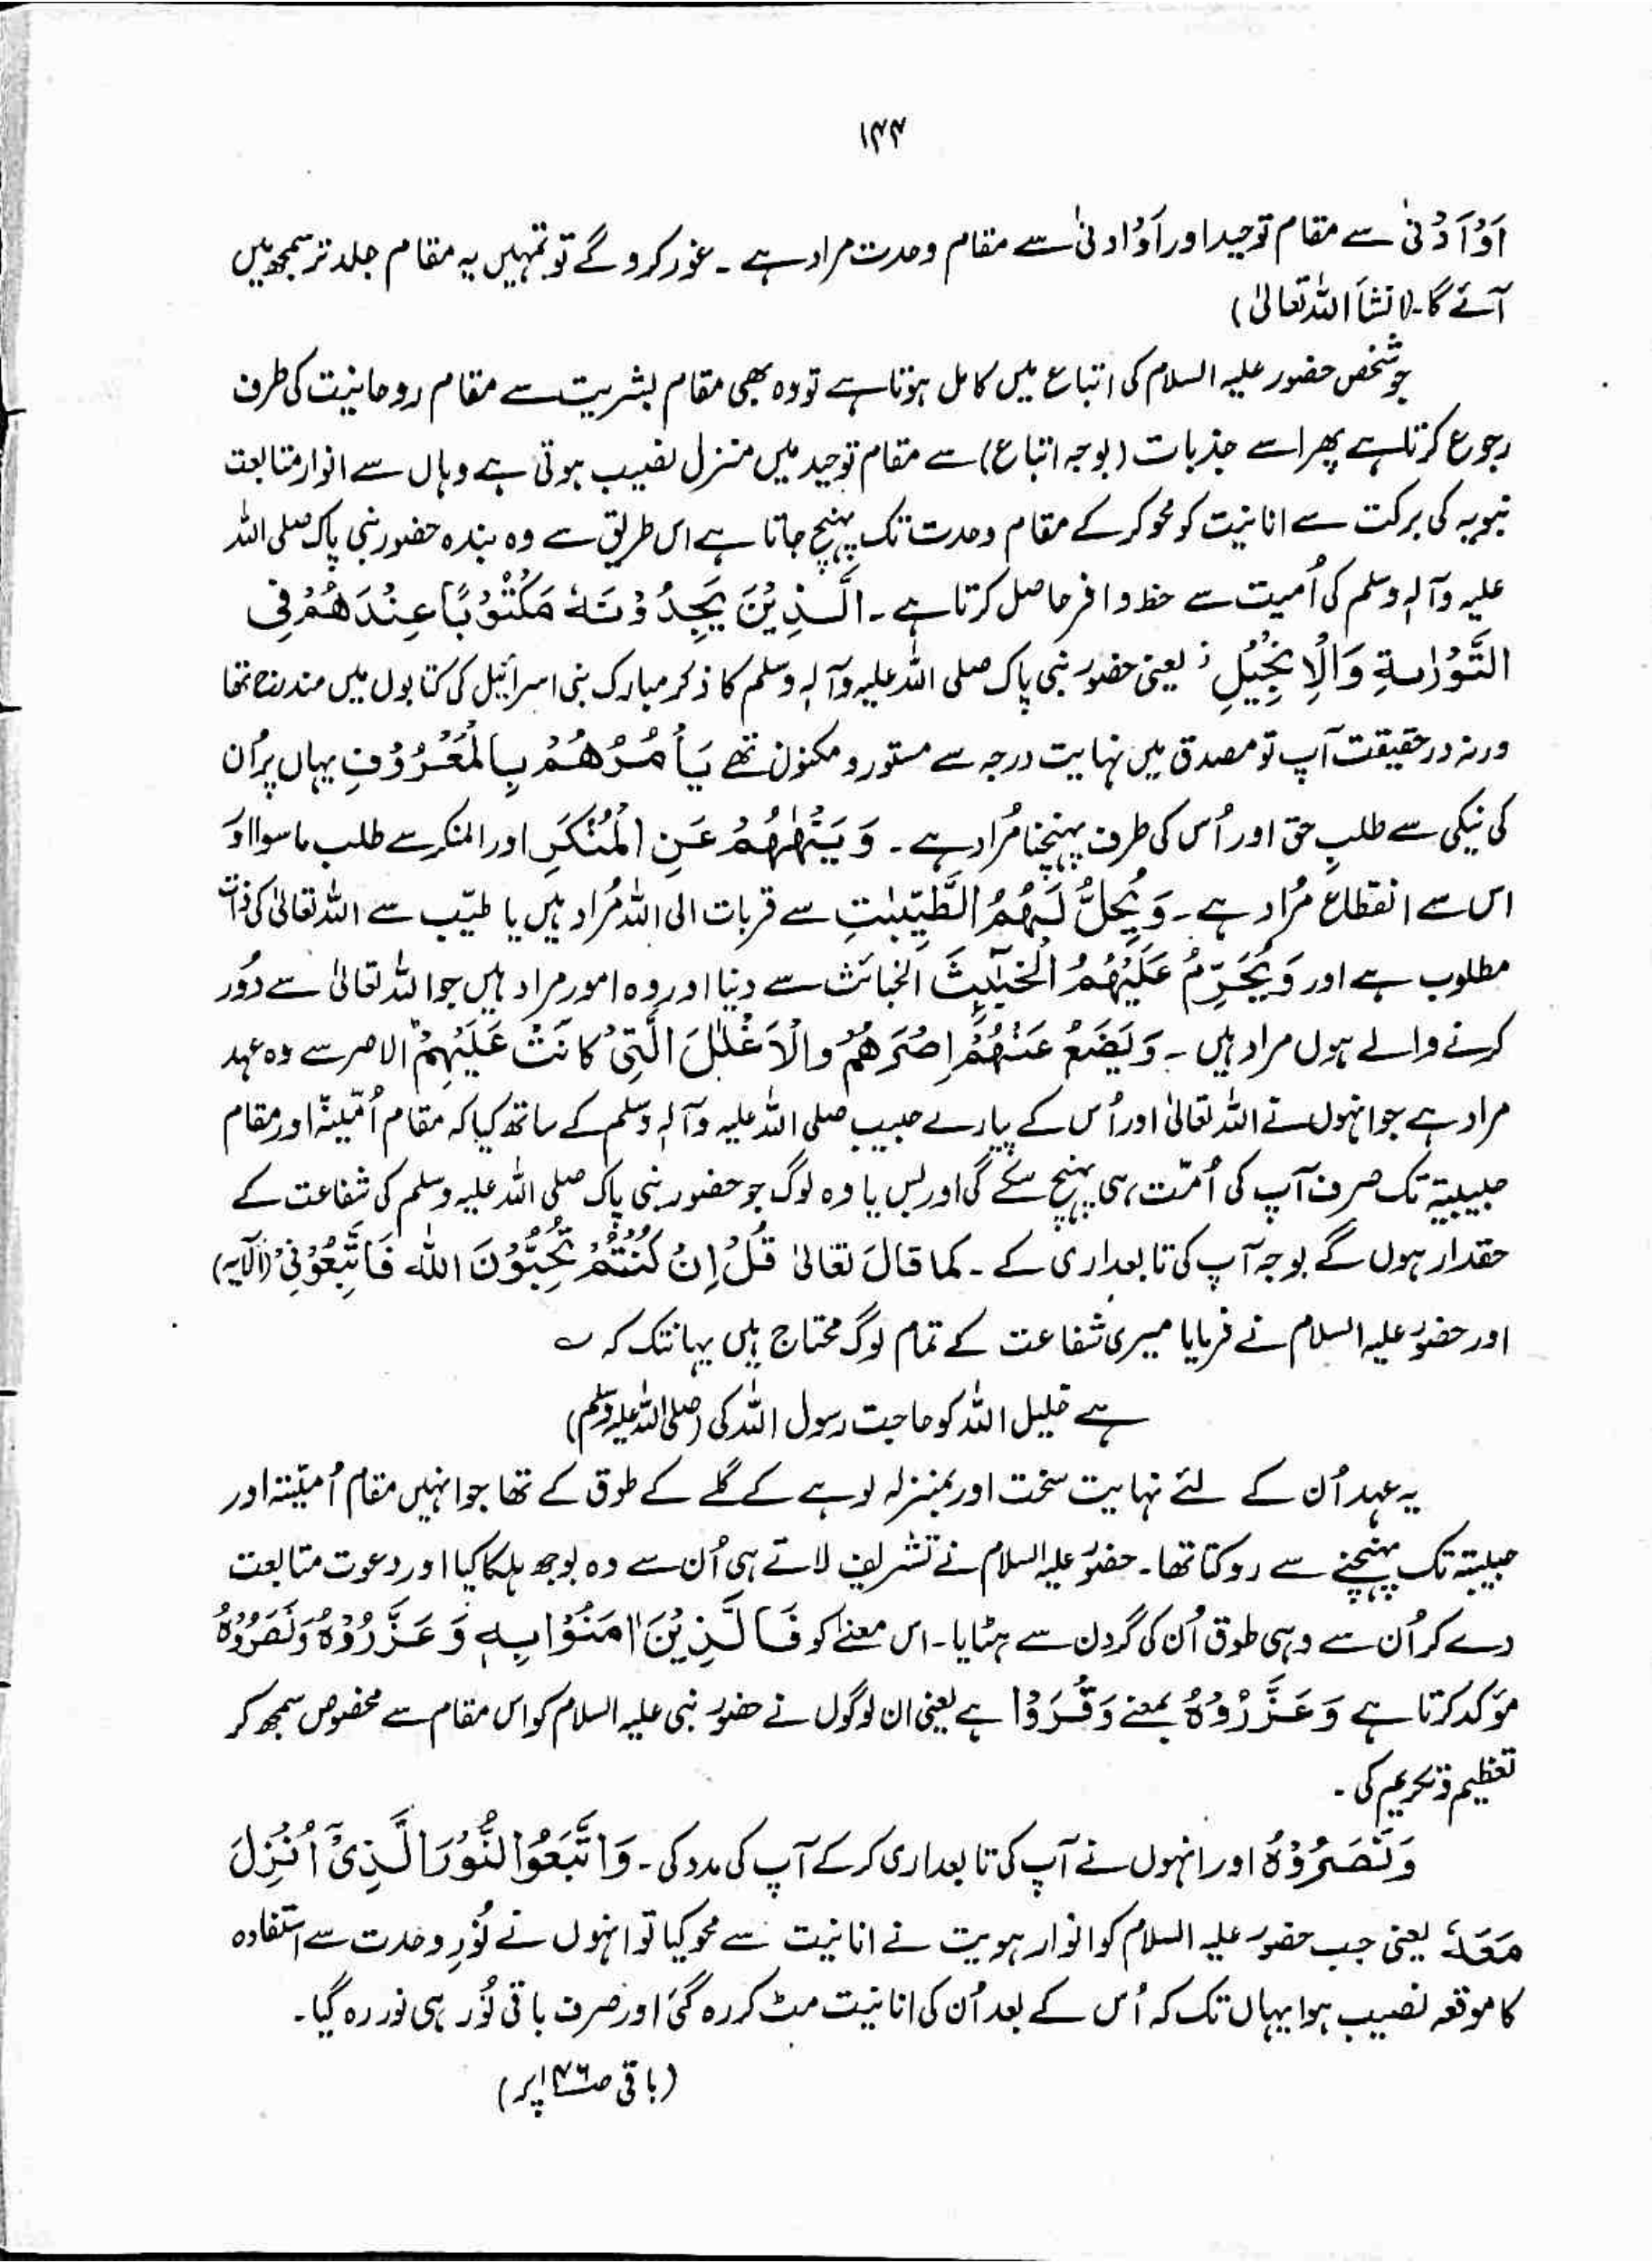 ۱۴۴
اَوْ اَدْنٰی سے مقام توحید اور اَوْادنیٰ سے مقام وحدت مراد ہے ۔ غور کرو گے تو تمہیں یہ مقام جلد تر سمجھ میں
آئے گا۔(انشاَ اللہ تعالیٰ)
جو شخص حضور علیہ السلام کی اتباع میں کامل ہوتا ہے تو وہ بھی مقام بشریت سے مقام روحانیت کی طرف
رجوع کرتا ہے پھر اسے جذبات (بوجہ اتباع) سے مقام توحید میں منزل نصیب ہوتی ہے وہاں سے انوار متابعت
نبویہ کی برکت سے انانیت کو محو کر کے مقام وحدت تک پہنچ جاتا ہے اس طریق سے وہ بندہ حضور نبی پاک صلی اللہ
علیہ وآلہٖ وسلم کی اُمیت سے حظ وافر حاصل کرتا ہے ۔ الَّذِیْنَ یَجِدُوْنَهٗ مَکْتُوْبًا عِنْدَهُمْ فِی
التَّوْرٰىةِ وَالْاِنْجِیْلِ ز یعنی حضور نبی پاک صلی اللہ علیہ وآلہٖ وسلم کا ذکر مبارک بنی اسرائیل کی کتابوں میں مندرج تھا
ورنہ درحقیقت آپ تو مصدق میں نہایت درجہ سے مستور و مکنون تھے یَاْمُرُهُمْ بِالْمَعْرُوْفِ یہاں پر اُن
کی نیکی سے طلبِ حق اور اُس کی طرف پہنچنا مُراد ہے ۔ وَیَنْهٰهُمْ عَنِ الْمُنْکَرِ اور المنکر سے طلب ما سوا اوَ
اس سے انقطاع مُراد ہے ۔ وَیُحِلُّ لَهُمُ الطَّیِّبٰتِ سے قربات الی اللہ مُراد ہیں یا طیّب سے اللہ تعالیٰ کی ذات
مطلوب ہے اور وَیُحَرِّمُ عَلَیْهِمُ الْخَبٰٓىِٕثَ الخبائث سے دنیا اور وہ امور مراد ہیں جو اللہ تعالیٰ سے دُور
کرنے والے ہوں مراد ہیں ۔ وَیَضَعُ عَنْهُمْ اِصْرَهُمْ والْاَغْلٰلَ الَّتِیْ کَانَتْ عَلَیْهِمْ الاصر سے وہ عہد
مراد ہے جو انہوں نے اللہ تعالیٰ اور اُس کے پیارے حبیب صلی اللہ علیہ وآلہٖ وسلم کے ساتھ کیا کہ مقام اُمّیتہ اور مقام
حبیبیۃ تک صرف آپ کی اُمّت ہی پہنچ سکے گی اور بس یا وہ لوگ جو حضور نبی پاک صلی اللہ علیہ وسلم کی شفاعت کے
حقدار ہوں گے بوجہ آپ کی تابعداری کے ۔ کما قالَ تعالیٰ قُلْ اِنْ کُنْتُمْ تُحِبُّوْنَ اللهَ فَاتَّبِعُوْنِیْ (الآیہ)
اور حضور علیہ السلام نے فرمایا میری شفاعت کے تمام لوگ محتاج ہیں یہانتک کہ ؎
ہے خلیل اللہ کو حاجت رسول اللہ کی (صلی اللہ علیہ وسلم)
یہ عہد اُن کے لئے نہایت سخت اور بمنزلہ لوہے کے گلے کے طوق کے تھا جو انہیں مقام اُمیّتہ اور
حبیبتہ تک پہنچنے سے روکتا تھا ۔ حضور علیہ السلام نے تشریف لاتے ہی اُن سے وہ بوجھ ہلکا کیا اور دعوت متابعت
دے کر اُن سے وہی طوق اُن کی گردن سے ہٹایا ۔ اس معنےٰ کو فَالَّذِیْنَ اٰمَنُوْا بِهٖ وَعَزَّرُوْهُ وَنَصَرُوْهُ
مؤکد کرتا ہے وَعَزَّرُوْهُ بمعنے وَقَّرُوْا ہے یعنی ان لوگوں نے حضور نبی علیہ السلام کو اس مقام سے مخصوص سمجھ کر
تعظیم و تکریم کی ۔
وَنَصَرُوْهُ اور انہوں نے آپ کی تابعداری کر کے آپ کی مدد کی ۔ وَاتَّبَعُوا النُّوْرَ الَّذِیْۤ اُنْزِلَ
مَعَهٗۤ یعنی جب حضور علیہ السلام کو انوار ہویت نے انانیت سے محو کیا تو انہوں نے نُورِ وحدت سے استفادہ
کا موقعہ نصیب ہوا یہاں تک کہ اُس کے بعد اُن کی انانیت مٹ کر رہ گئی اور صرف باقی نُور ہی نور رہ گیا ۔
(باقی صـ۱۴۶ پر)